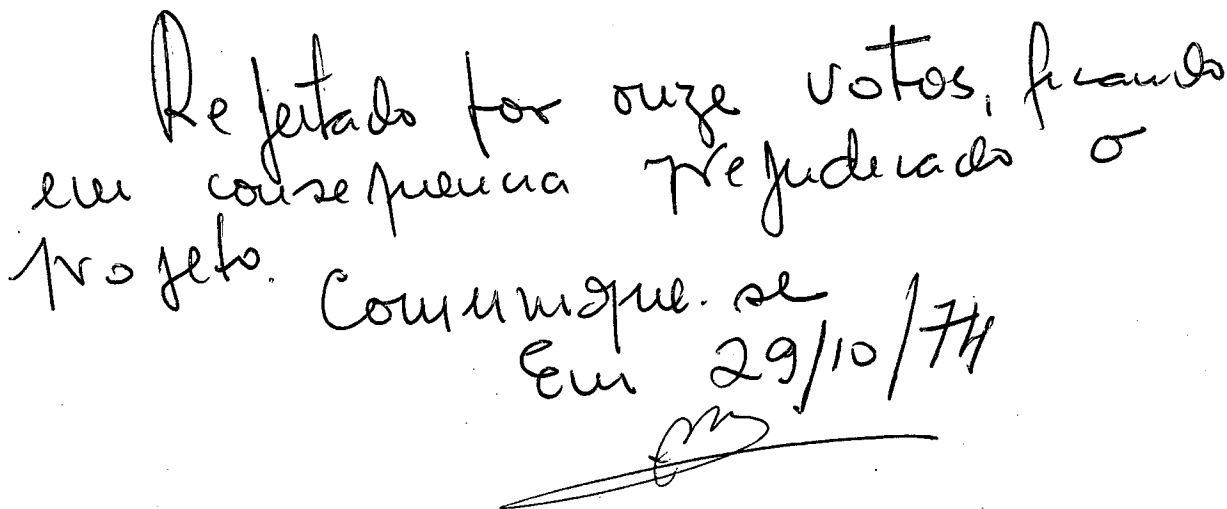 Rejeitado por onze votos, ficando
em consequencia prejudicado o
projeto.
Comunique-se
Em 29/10/74